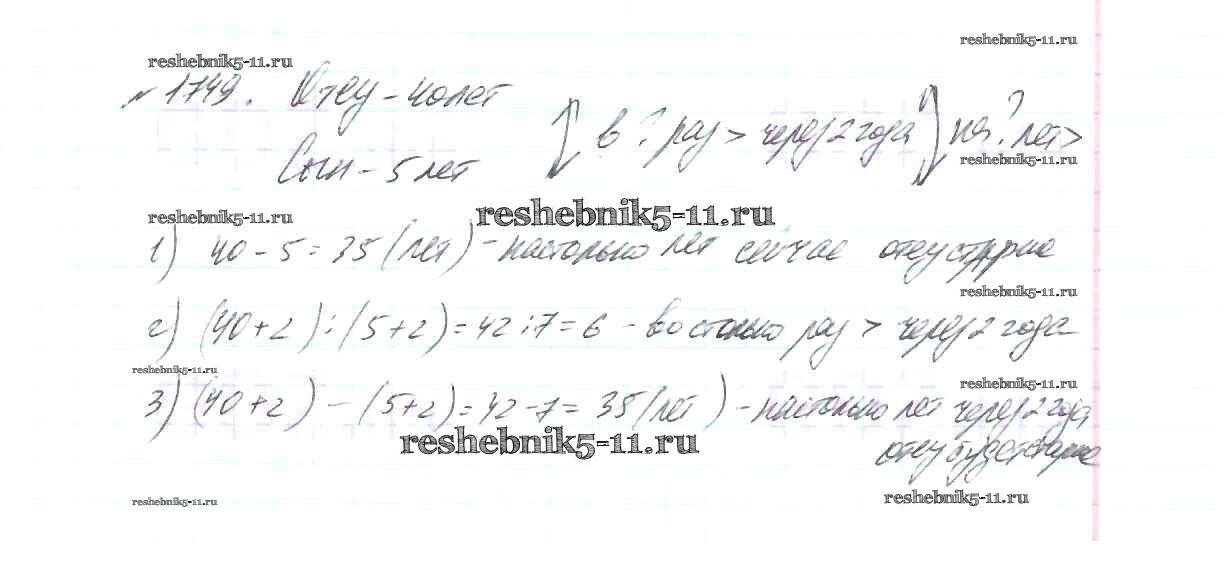 reshebnik5-11.ru
reshebnik5-11.ru
№ 1749. Отец - 40 лет
Сын - 5 лет
в ? раз > через 2 года
на ? лет >
reshebnik5-11.ru
reshebnik5-11.ru
reshebnik5-11.ru
1) 40 - 5 = 35 (лет) - настолько лет сейчас отец старше
reshebnik5-11.ru
2) (40+2) : (5+2) = 42 : 7 = 6 - во столько раз > через 2 года
reshebnik5-11.ru
reshebnik5-11.ru
3) (40+2) - (5+2) = 42 - 7 = 35 (лет) - настолько лет через 2 года
reshebnik5-11.ru
отец будет старше
reshebnik5-11.ru
reshebnik5-11.ru